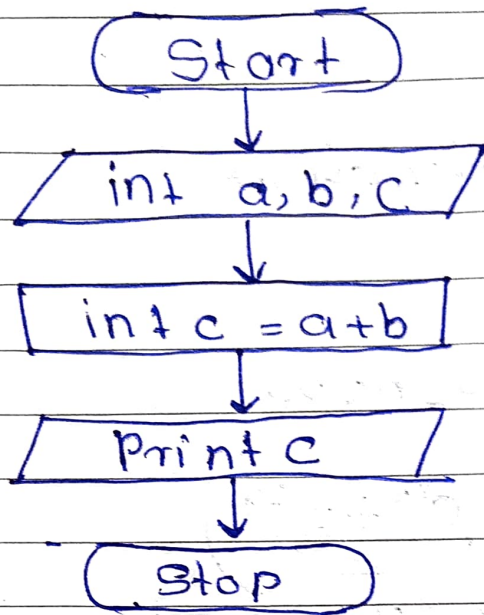 Start
int a, b, c
int c = a+b
Print c
Stop